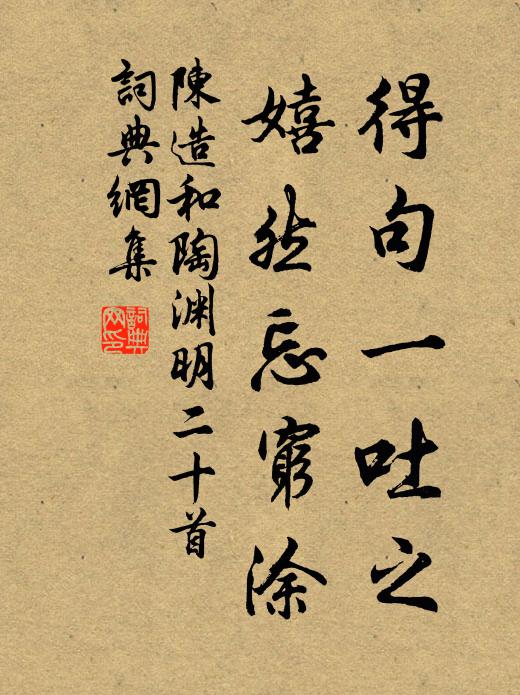 得句一吐之
嬉然忘窮涂
陳造和陶淵明二十首
詞典網集
詞典網印